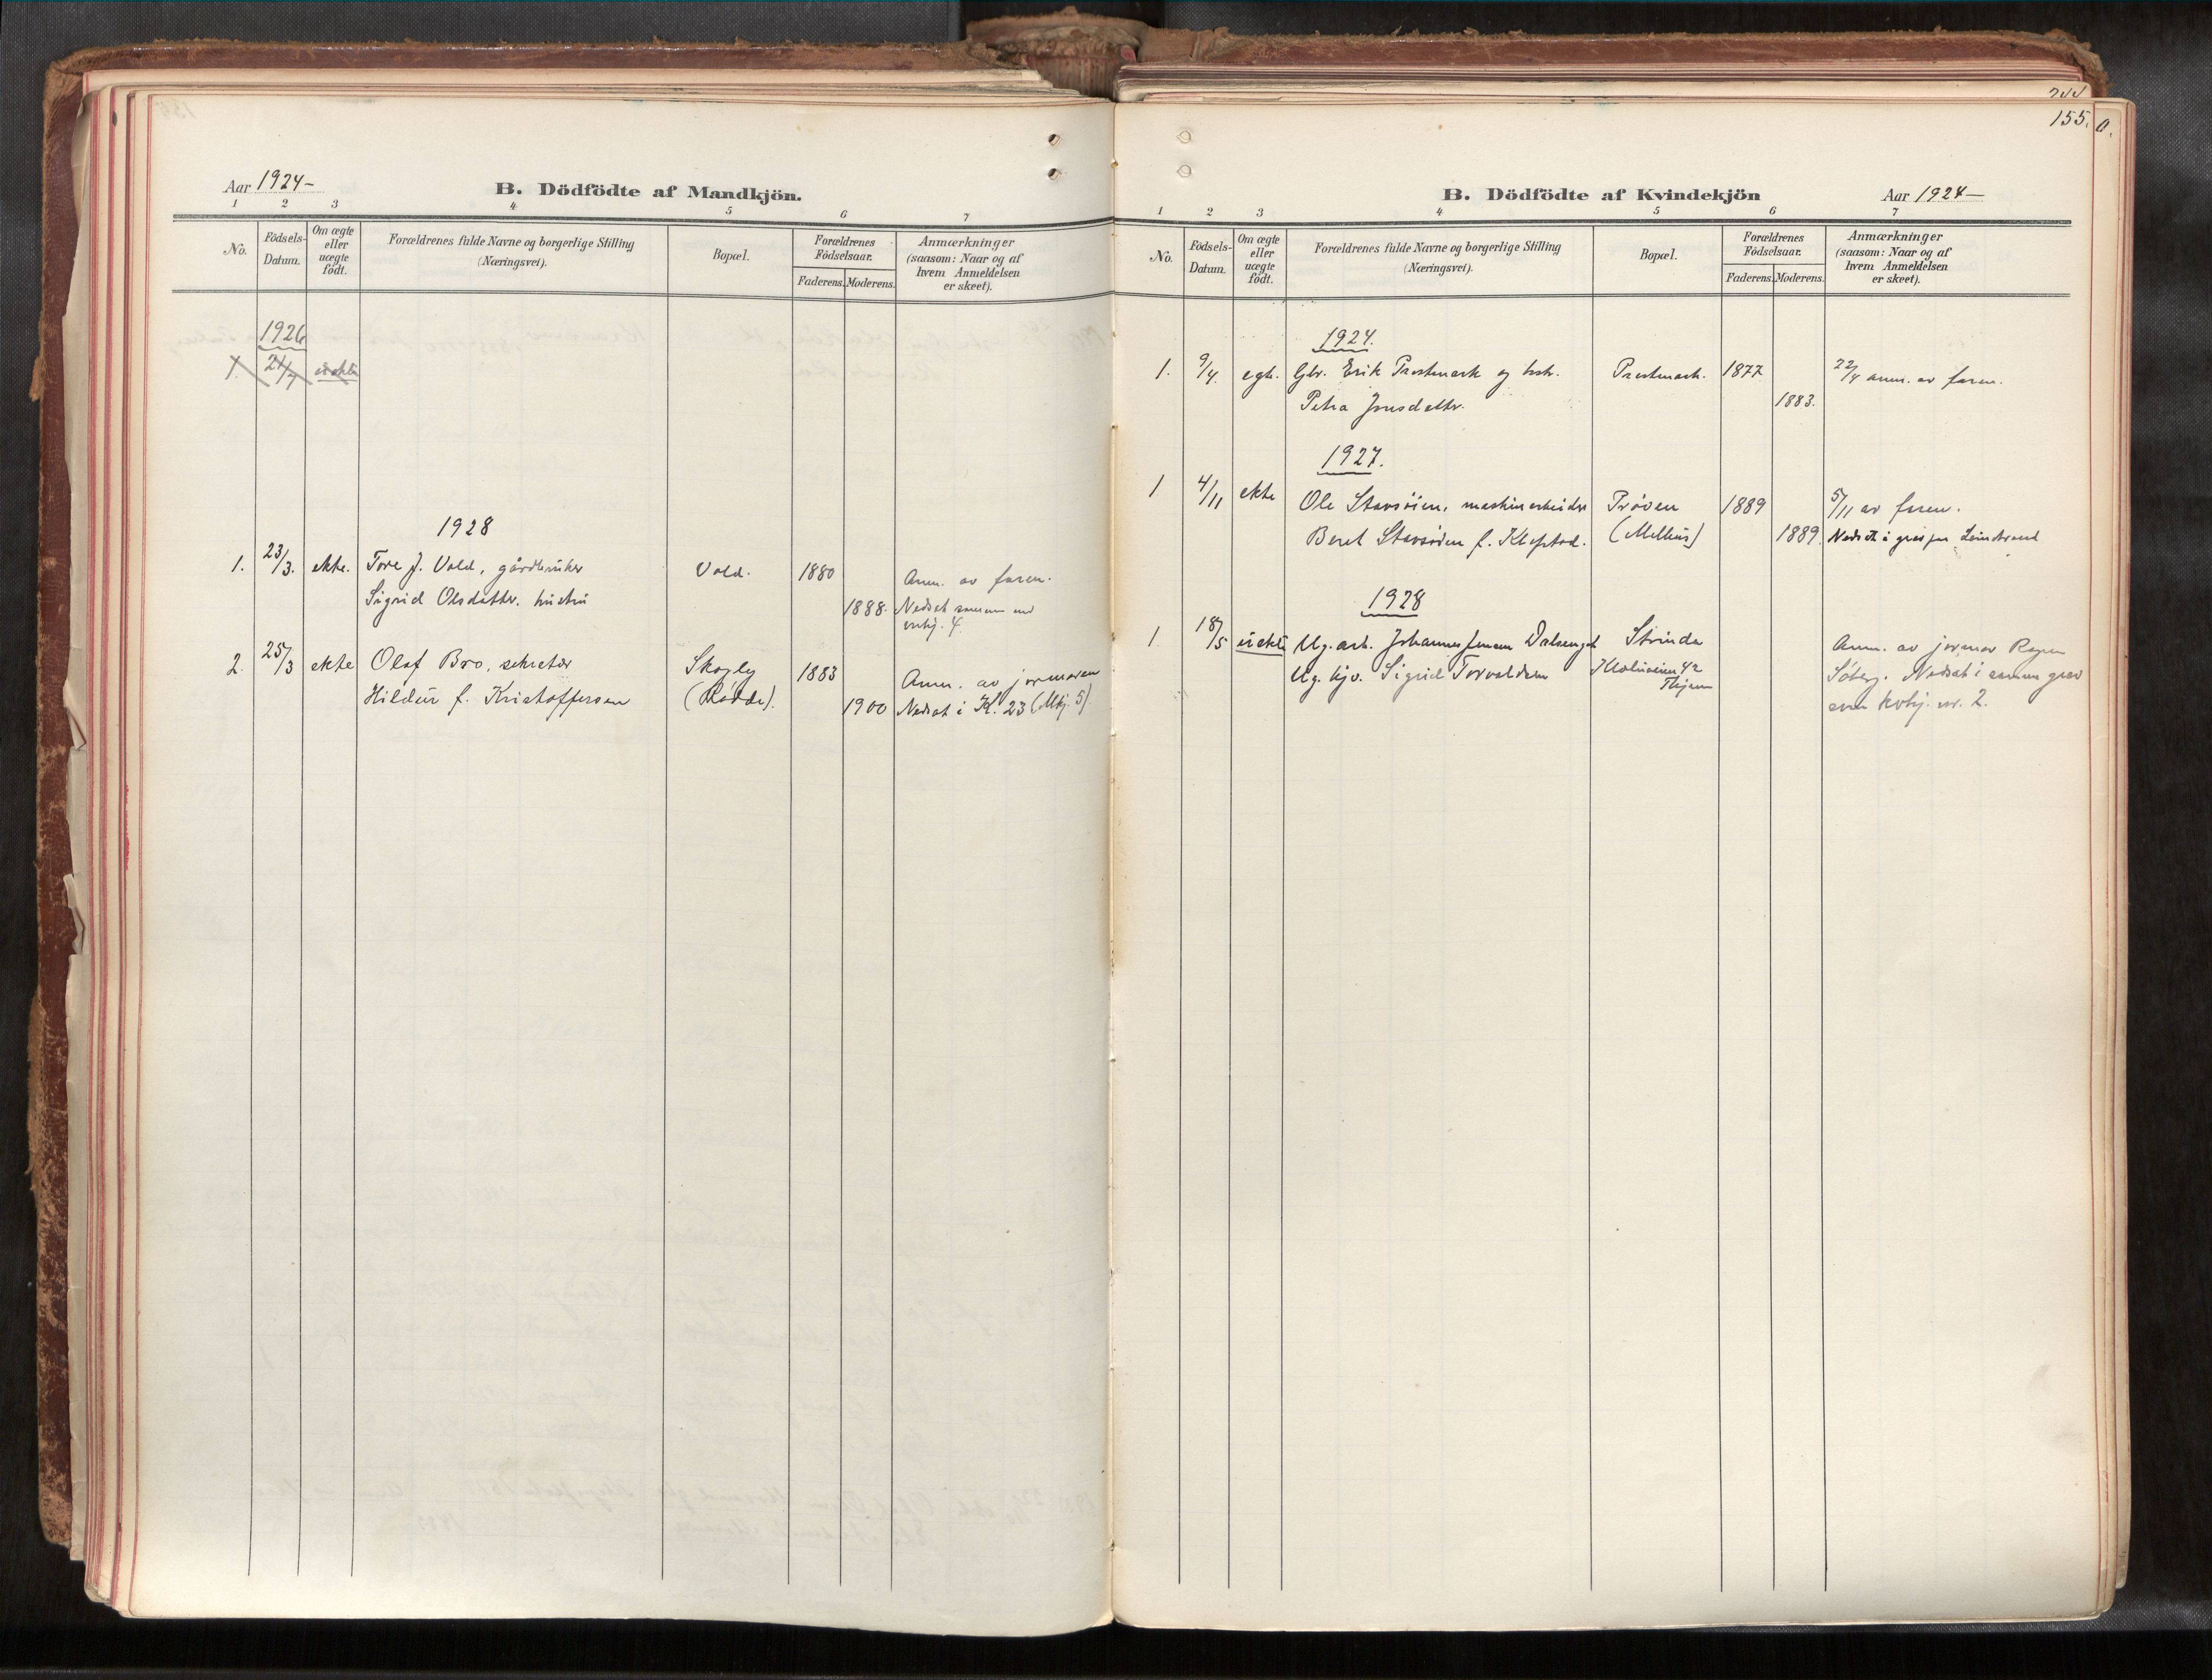 Aar 1924-
B. Dödfödte af Mandkjön.
1 2 3 4 5 6 7
No.
Födsels-Datum.
Om ægte eller uægte födt.
Forældrenes fulde Navne og borgerlige Stilling (Næringsvei).
Bopæl.
Forældrenes Födselsaar.
Faderens. Moderens.
Anmærkninger (saasom: Naar og af hvem Anmeldelsen er skeet).
1926
1. 21/7 uekte
1928
1. 23/3. ekte. Tore J. Vold, gårdbruker Vold. 1880 Anm. av faren.
Sigrid Olsdattr. hustru 1888. Nedsat sammen med
kvkj. 4.
2. 25/3 ekte Olaf Bro, sekretær Skogly 1883 Anm. av jormoren
Hildur f. Kristoffersen (Rødde). 1900 Nedsat i K. 23 (Mkj. 5).
244
155. 0.
B. Dödfödte af Kvindekjön
Aar 1924-
1 2 3 4 5 6 7
No.
Födsels-Datum.
Om ægte eller uægte födt.
Forældrenes fulde Navne og borgerlige Stilling (Næringsvei).
Bopæl.
Forældrenes Födselsaar.
Faderens. Moderens.
Anmærkninger (saasom: Naar og af hvem Anmeldelsen er skeet).
1924.
1. 9/4 egte. Gbr. Erik Prestmark og hstr. Prestmark. 1877 22/4 anm. av faren.
Petra Jonsdattr. 1883.
1927.
1 4/11 ekte Ole Stavsøien, maskinarbeider Prøven 1889 5/11 av faren.
Beret Stavsøien f. Klefstad. (Melhus) 1889. Nedsatt i grav paa Leinstrand
1928
1. 18/5 uekte Ug. arb. Johannes Jensen Dalsenget Strinda Anm. av jormor
Ug. kjv. Sigrid Torvaldsen 42 Thjem Søberg. Nedsat i samme grav
som kvkj. nr. 2.